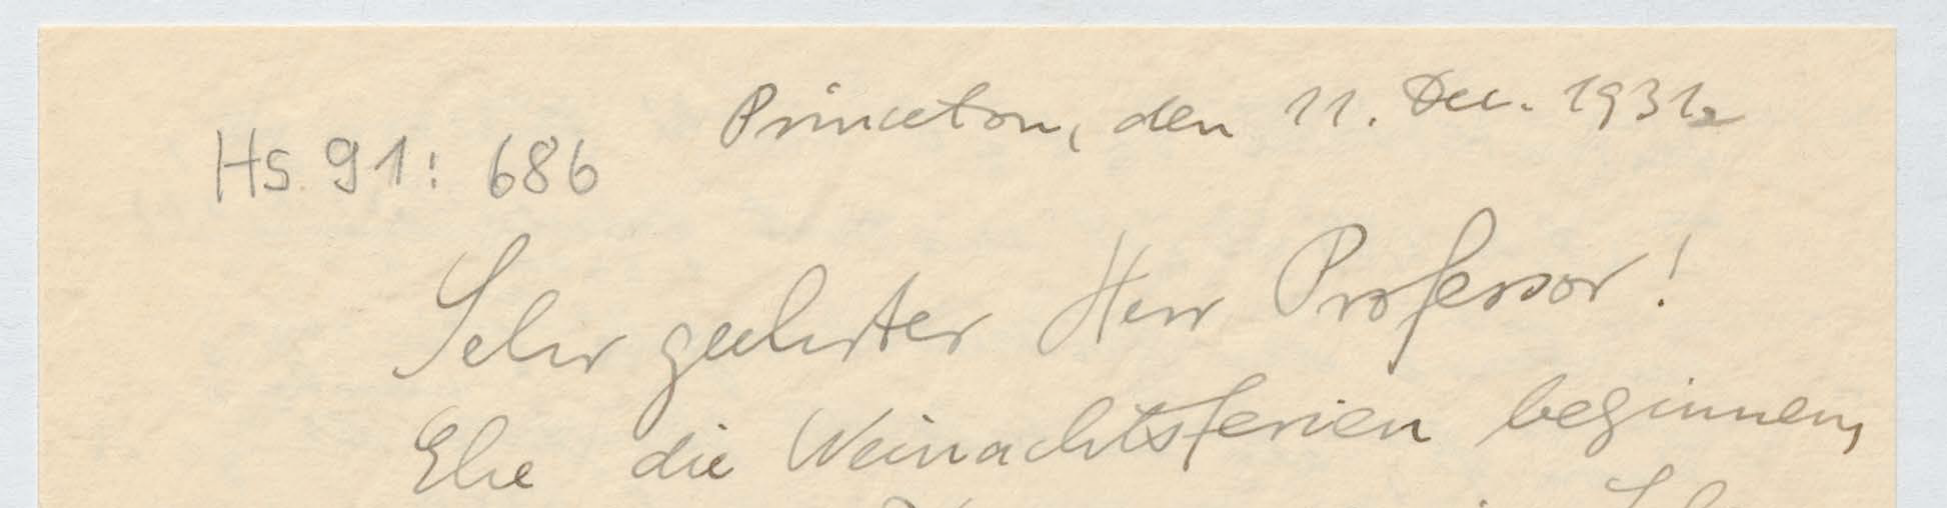 Princeton, den 11. Dec. 1931
Hs 91: 686
Sehr geehrter Herr Professor!
Ehe die Weinachtsferien beginnen,